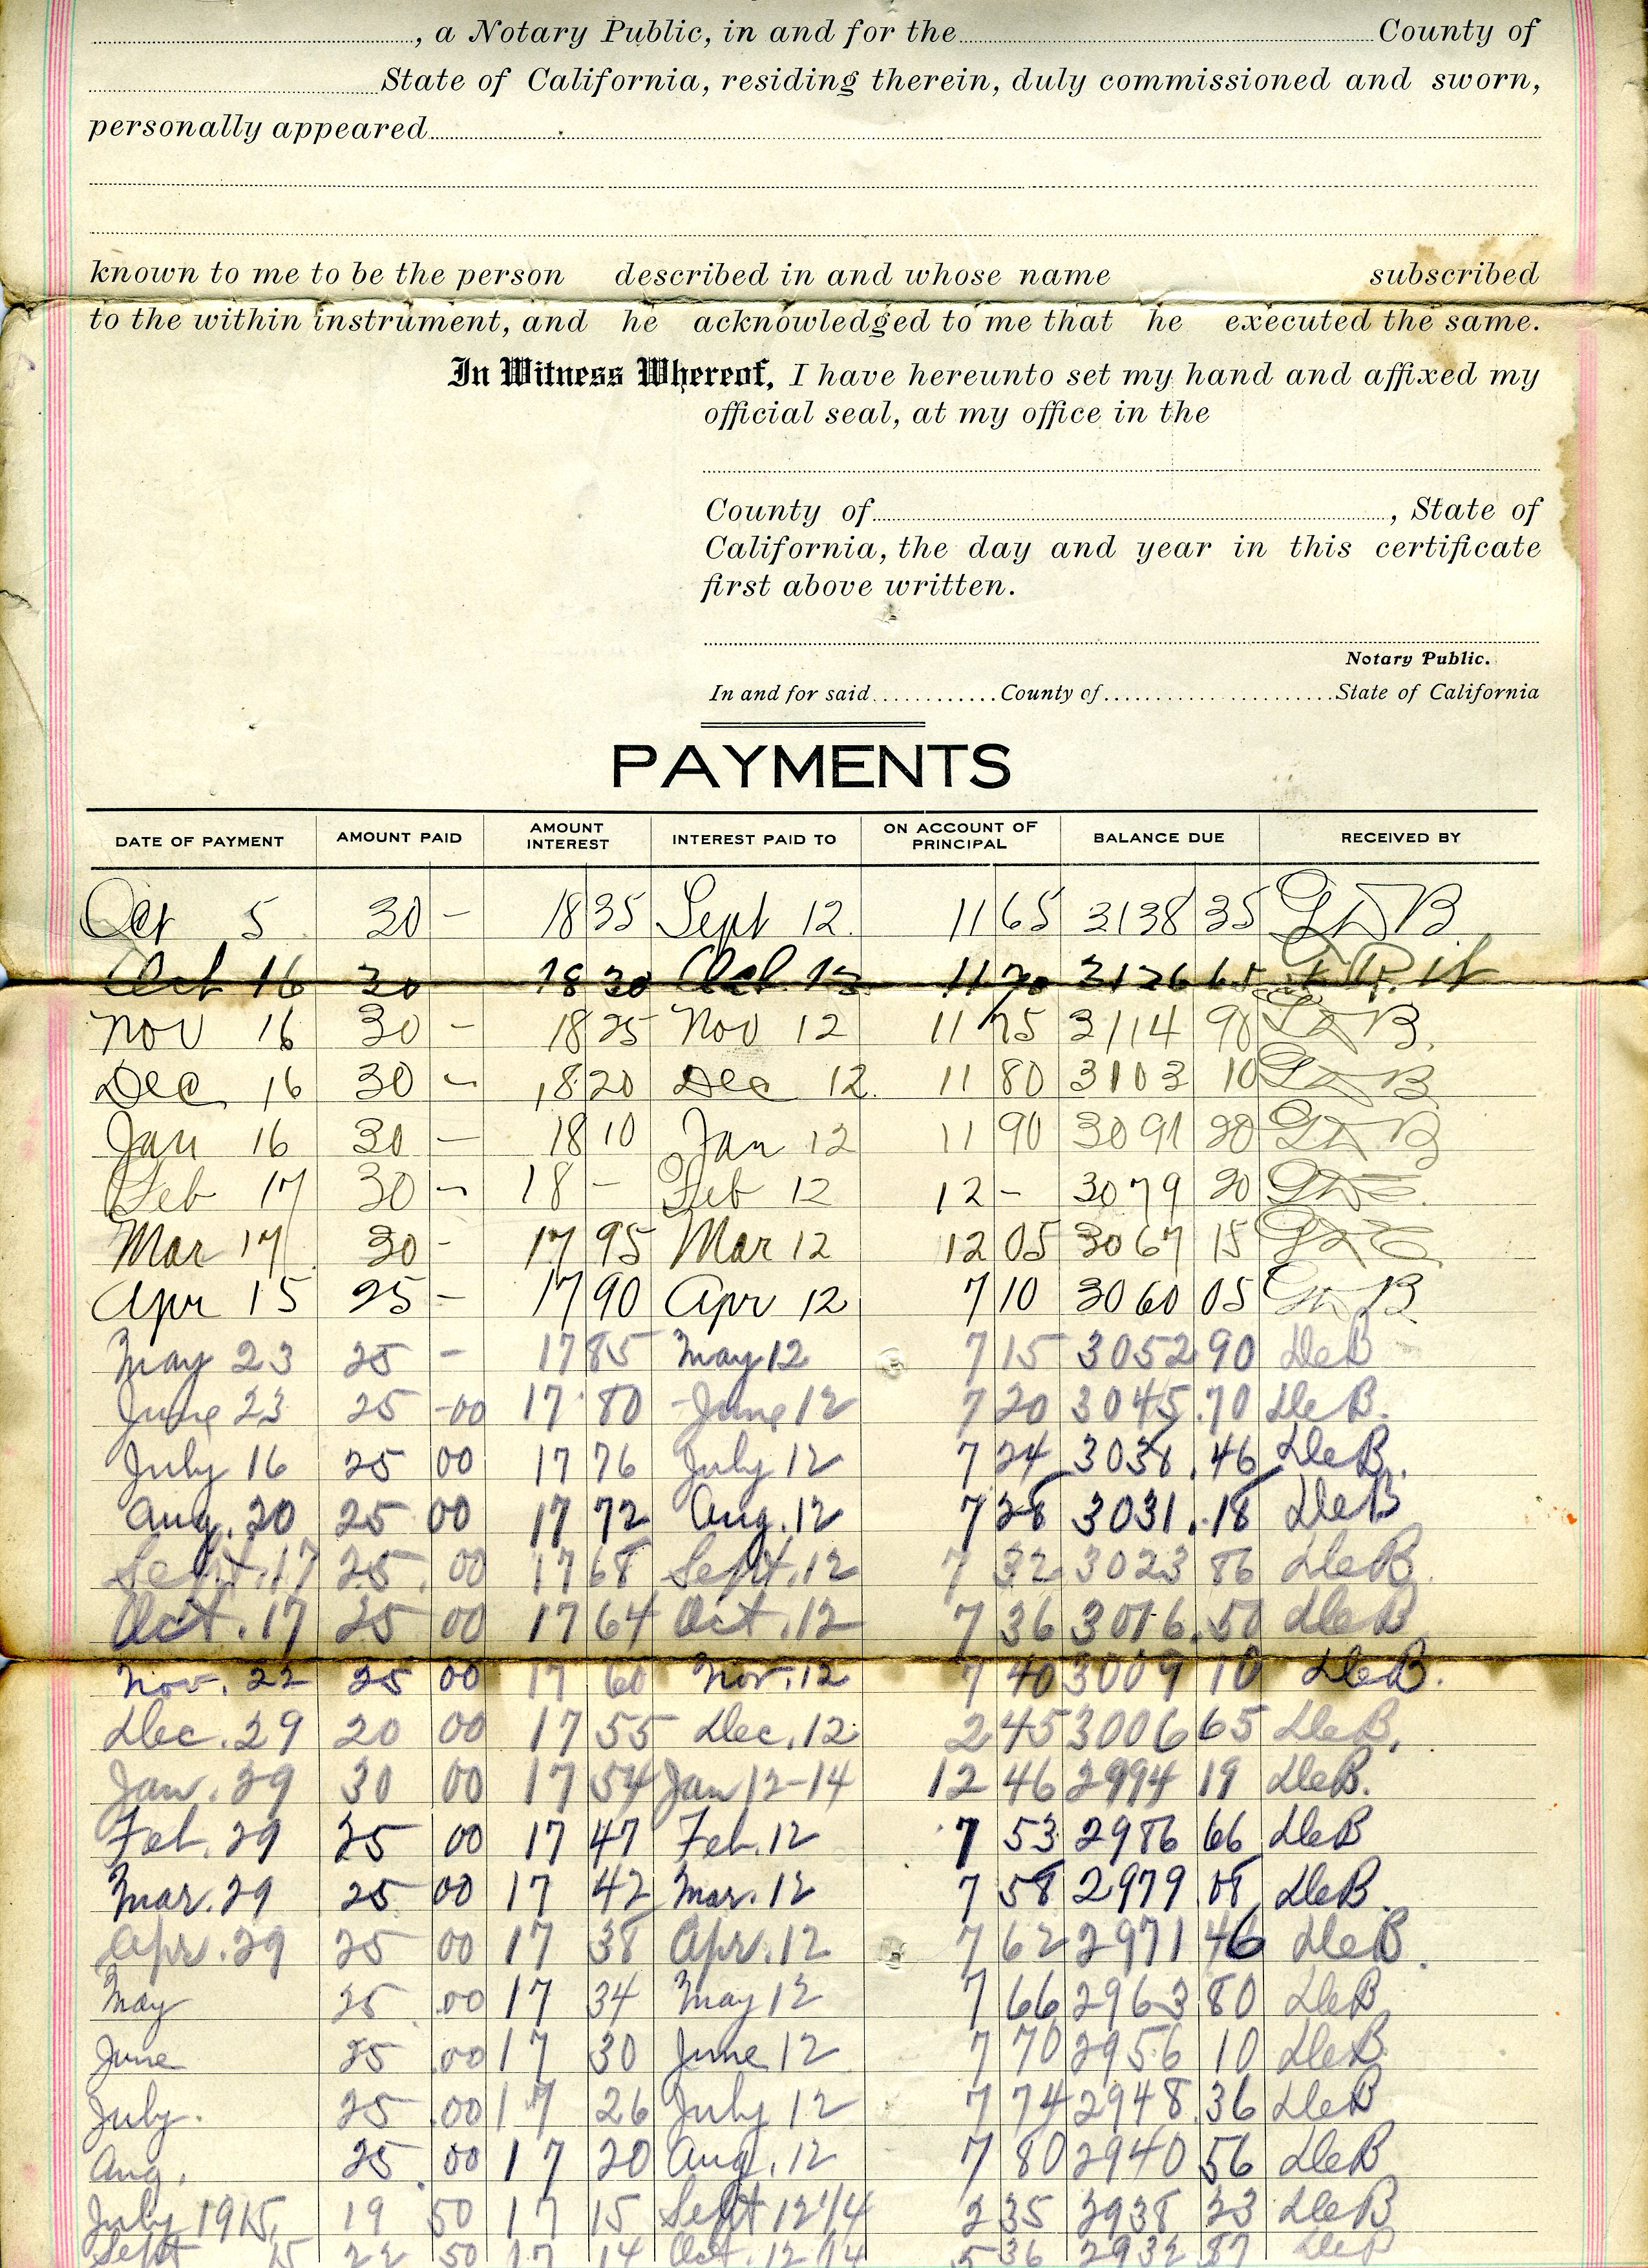 , a Notary Public, in and for the County of
State of California, residing therein, duly commissioned and sworn,
personally appeared
known to me to be the person described in and whose name subscribed
to the within instrument, and he acknowledged to me that he executed the same.
In Witness Whereof, I have hereunto set my hand and affixed my
official seal, at my office in the
County of , State of
California, the day and year in this certificate
first above written.
Notary Public.
In and for said ............ County of ........................ State of California
PAYMENTS
DATE OF PAYMENT AMOUNT PAID AMOUNT INTEREST INTEREST PAID TO ON ACCOUNT OF PRINCIPAL BALANCE DUE RECEIVED BY
Oct 5 30 - 18 35 Sept 12 11 65 3138 35
Oct 16 30 - 18 30 Oct. 12 11 70 3126 65
Nov 16 30 - 18 25 Nov 12 11 75 3114 90
Dec 16 30 - 18 20 Dec 12 11 80 3103 10
Jan 16 30 - 18 10 Jan 12 11 90 3091 20
Feb 17 30 - 18 - Feb 12 12 - 3079 20
Mar 17 30 - 17 95 Mar 12 12 05 3067 15
Apr 15 25 - 17 90 Apr 12 7 10 3060 05
May 23 25 - 17 85 May 12 7 15 3052 90 DeB
June 23 25 -00 17 80 June 12 7 20 3045.70 DeB.
July 16 25 00 17 76 July 12 7 24 3038.46 DeB.
Aug. 20 25 00 17 72 Aug. 12 7 28 3031.18 DeB
Sept. 17 25.00 17 68 Sept. 12 7 32 3023 86 DeB.
Oct. 17 25 00 17 64 Oct. 12 7 36 3016.50 DeB
Nov. 22 25 00 17 60 Nov. 12 7 40 3009 10 DeB.
Dec. 29 20 00 17 55 Dec. 12 2 45 3006 65 DeB.
Jan. 29 30 00 17 54 Jan 12-14 12 46 2994 19 DeB.
Feb. 29 25 00 17 47 Feb. 12 7 53 2986 66 DeB
Mar. 29 25 00 17 42 Mar. 12 7 58 2979 08 DeB.
Apr. 29 25 00 17 38 Apr. 12 7 62 2971 46 DeB.
May 25 .00 17 34 May 12 7 66 2963 80 DeB.
June 25 .00 17 30 June 12 7 70 2956 10 DeB.
July. 25 .00 17 26 July 12 7 74 2948.36 DeB
Aug. 25.00 17 20 Aug. 12 7 80 2940 56 DeB
July 1915, 19 50 17 15 Sept 12 '14 2 35 2938 23 DeB
Sept 15 22 50 17 14 Oct. 12 '14 5 36 2932 87 DeB